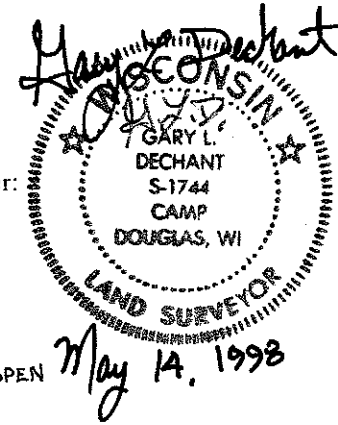 Gary L. Dechant
WISCONSIN
G.L.D.
GARY L.
DECHANT
S-1744
CAMP
DOUGLAS, WI
LAND SURVEYOR
r:
PEN May 14, 1998